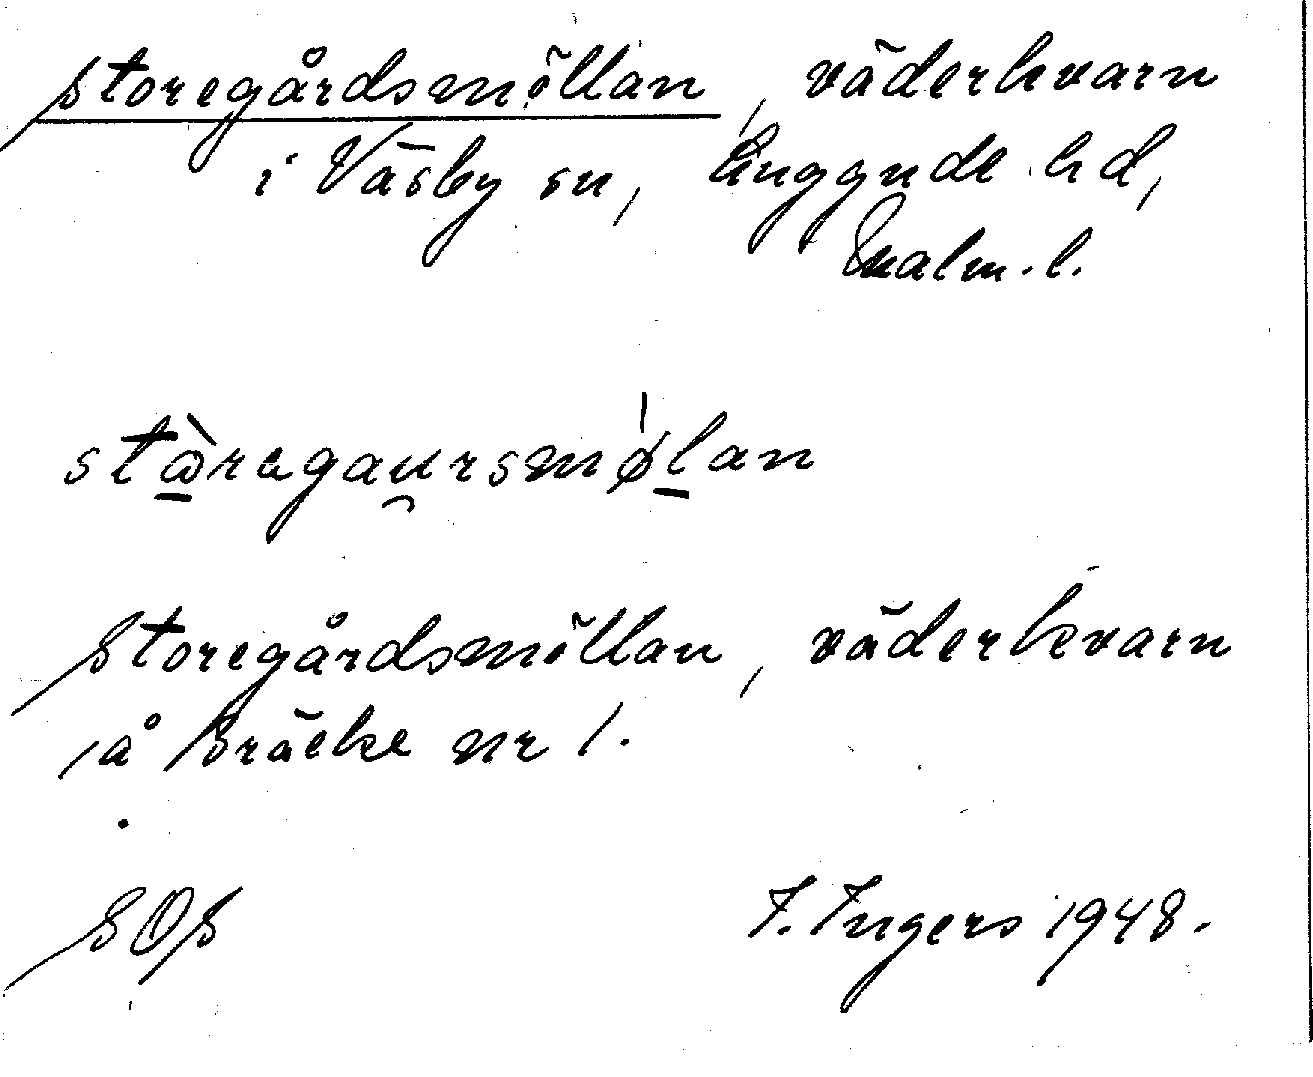 Storegårdsmöllan, väderkvarn
i Väsby sn, Luggude hd,
Malm. l.
stὼ̱regau̯rsmø̍ḻan
Storegårdsmöllan, väderkvarn
å Bräcke nr 1.
SOS I. Ingers 1948.